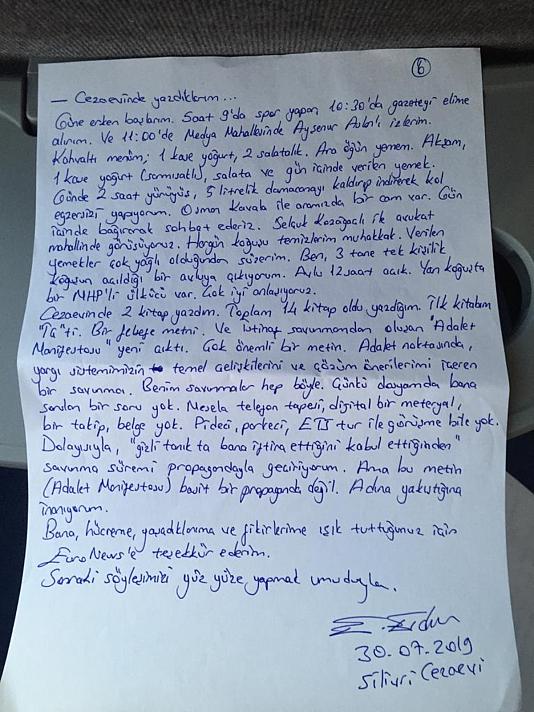 6
— Cezaevinde yazdıklarım...
Güne erken başlarım. Saat 9'da spor yapar, 10:30'da gazeteyi elime
alırım. Ve 11:00'de Medya Mahallesinde Ayşenur Aslan'ı izlerim.
Kahvaltı menüm; 1 kase yoğurt, 2 salatalık. Ara öğün yemem. Akşam,
1 kase yoğurt (sarımsaklı), salata ve gün içinde verilen yemek.
Günde 2 saat yürüyüş, 5 litrelik damacanayı kaldırıp indirerek kol
egzersizi yapıyorum. Osman Kavala ile aramızda bir cam var. Gün
içinde bağırarak sohbet ederiz. Selçuk Kozağaçlı ile avukat
mahallinde görüşüyoruz. Hergün koğuşu temizlerim muhakkak. Verilen
yemekler çok yağlı olduğundan süzerim. Ben, 3 tane tek kişilik
koğuşun açıldığı bir avluya çıkıyorum. Avlu 12 saat açık. Yan koğuşta
bir MHP'li ülkücü var. Çok iyi anlaşıyoruz.
Cezaevinde 2 kitap yazdım. Toplam 14 kitap oldu yazdığım. İlk kitabım
Bir felsefe metni. Ve istinaf savunmamdan oluşan "Adalet
Manifestosu" yeni çıktı. Çok önemli bir metin. Adalet noktasında,
yargı sistemimizin temel çelişkilerini ve çözüm önerilerimi içeren
bir savunma. Benim savunmalar hep böyle. Çünkü dosyamda bana
sorulan bir soru yok. Mesela telefon tapesi, digital bir meteryal,
bir takip, belge yok. Pideci, parkeci, ETS tur ile görüşme bile yok.
Dolayısıyla, "gizli tanık ta bana iftira ettiğini kabul ettiğinden"
savunma süremi propagandayla geçiriyorum. Ama bu metin
(Adalet Manifestosu) basit bir propaganda değil. Adına yakıştığına
inanıyorum.
Bana, hücreme, yaşadıklarıma ve fikirlerime ışık tuttuğunuz için
EuroNews'e teşekkür ederim.
Sonraki söyleşimizi yüz yüze yapmak umuduyla.
30.07.2019
Silivri Cezaevi